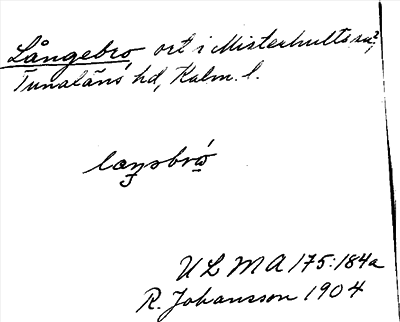 Långebro, ort i Misterhults sn?,
Tunaläns hd, Kalm. l.
laŋsbro
ULMA 175:184a
R. Johansson 1904